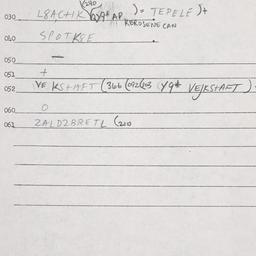 030 L8ACHIK ) = TEPELE )+
KEROSENE CAN
040 SPOTKEE
050 —
051 +
052 VE KSHAFT (366 (092(203 Y9* VE/KSHAFT )
060 O
061 2ALD2BRETL (200